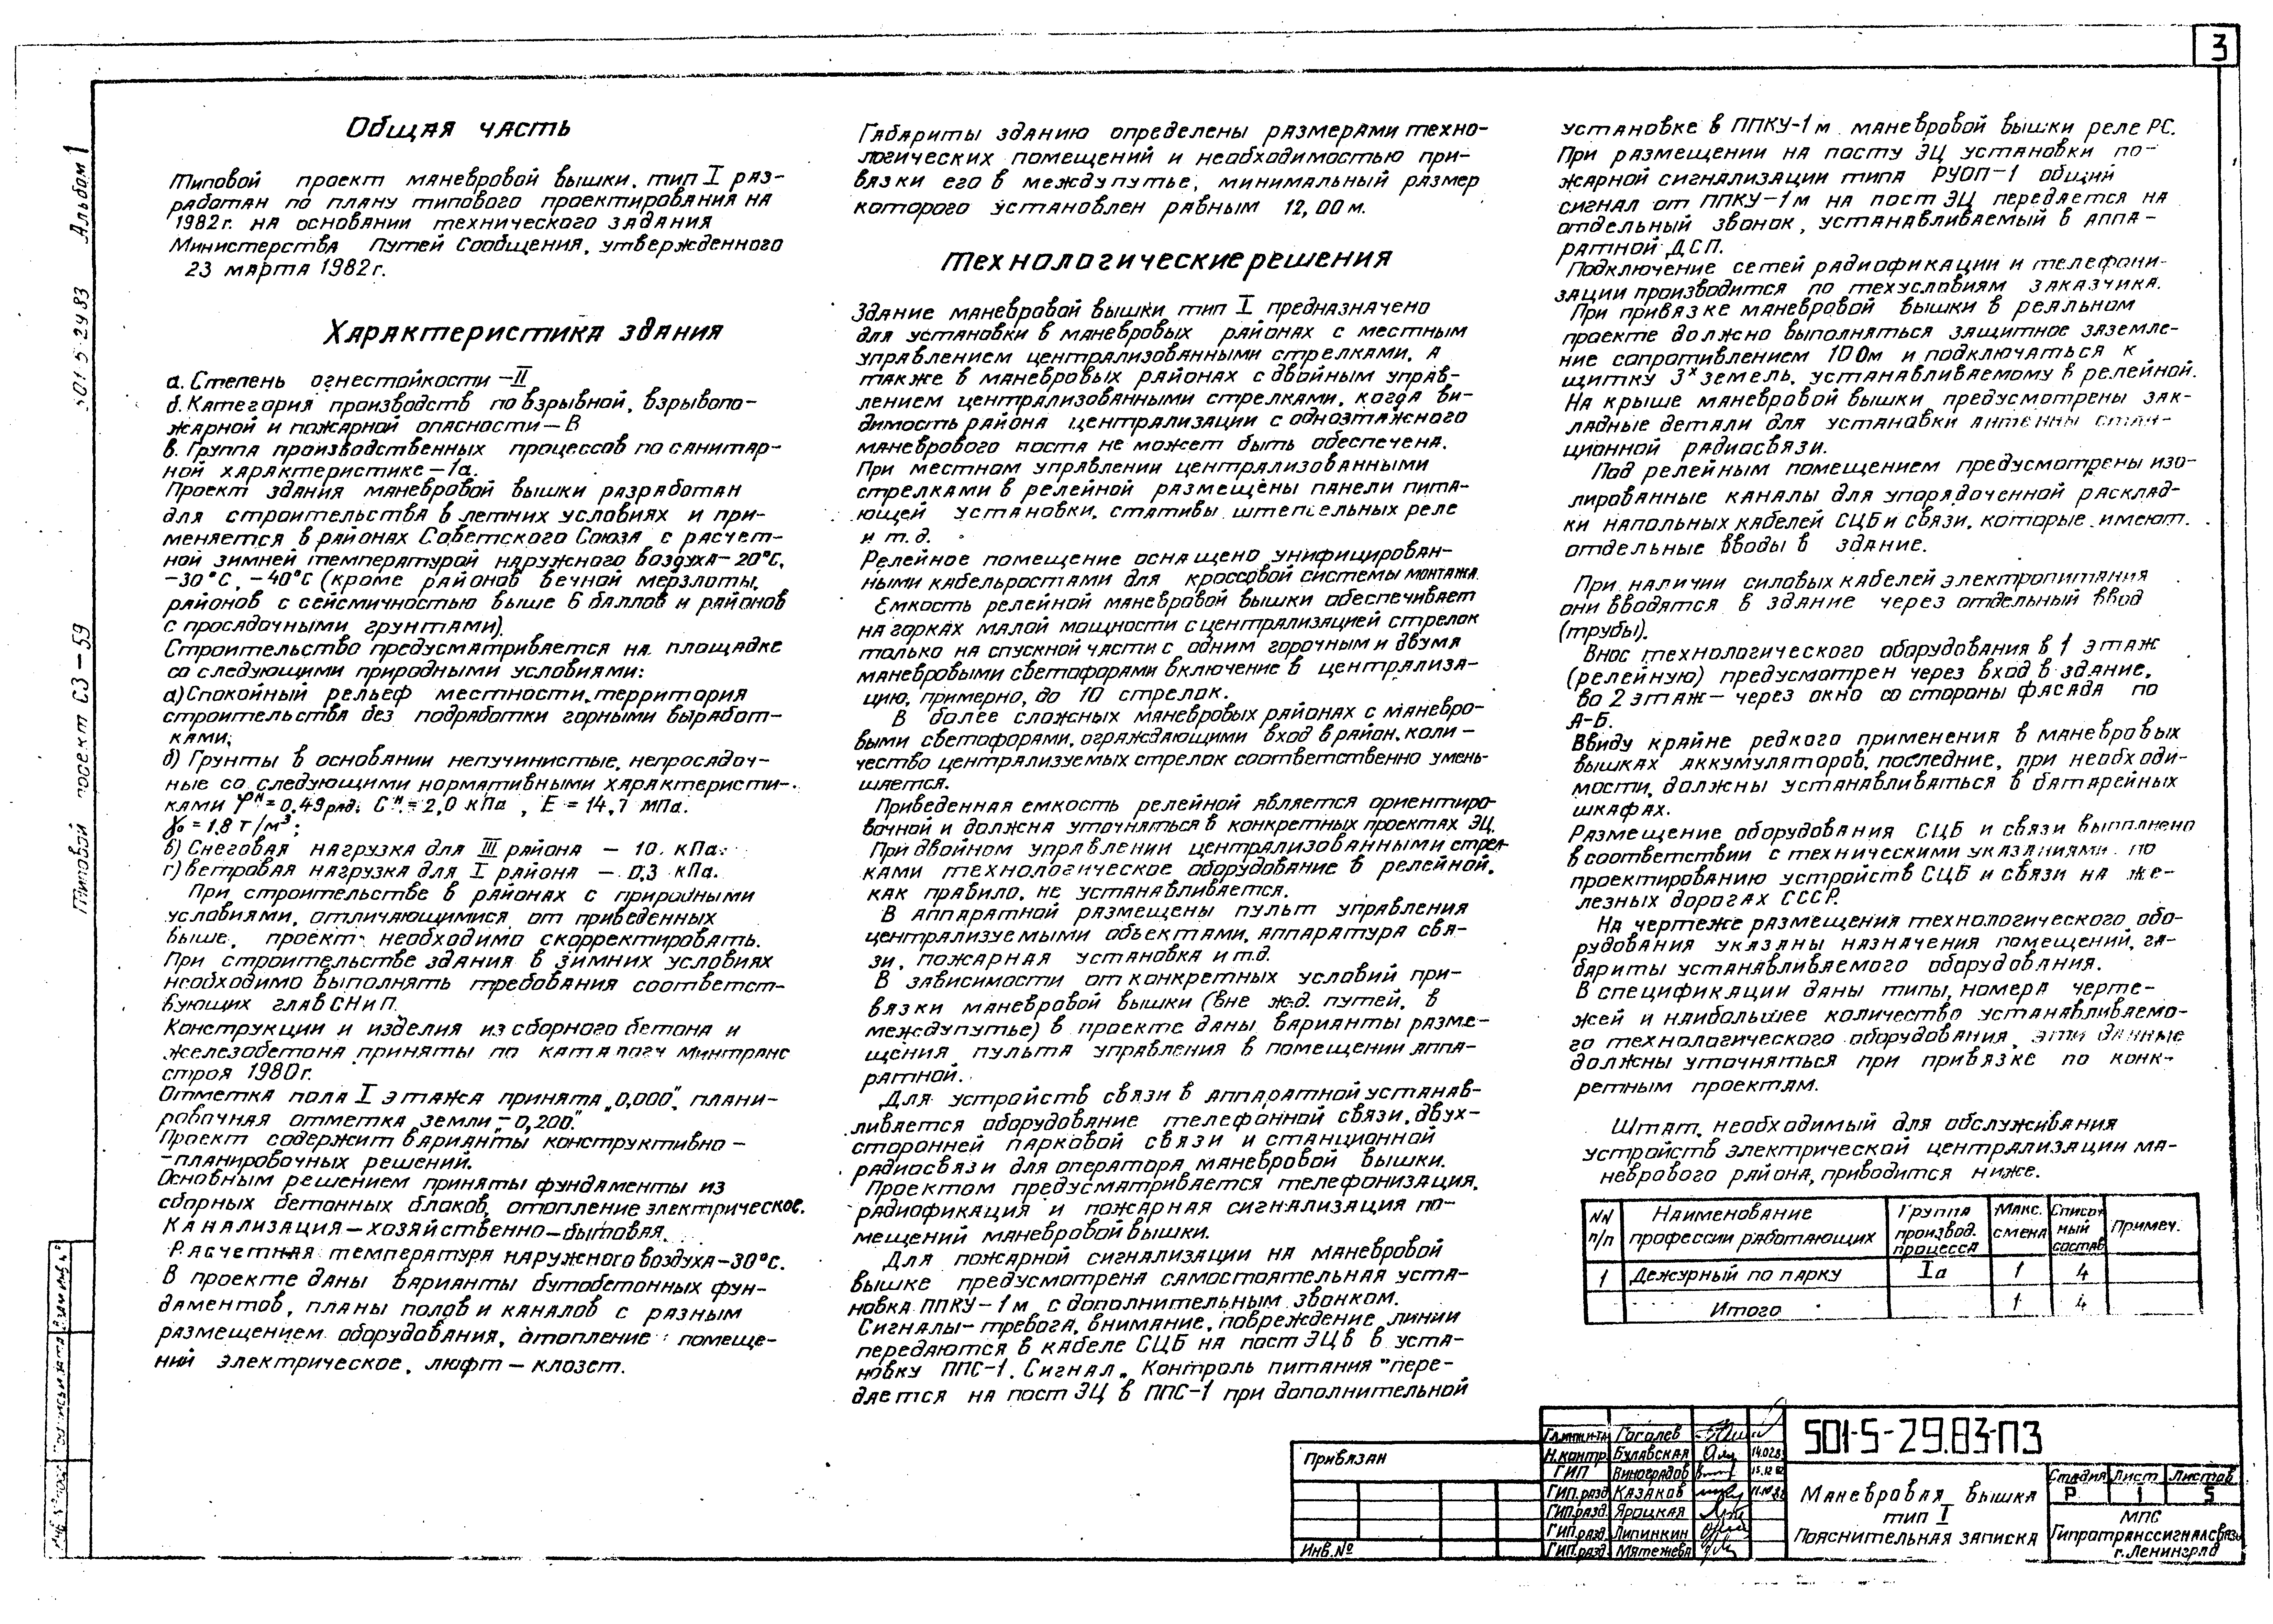 3
Общая часть
Типовой проект маневровой вышки, тип I раз-
работан по плану типового проектирования на
1982г. на основании технического задания
Министерства Путей Сообщения, утвержденного
23 марта 1982г.
Характеристика здания
а. Степень огнестойкости -II
б. Категория производств по взрывной, взрывопо-
жарной и пожарной опасности - В
в. Группа производственных процессов по санитар-
ной характеристике - 1а.
Проект здания маневровой вышки разработан
для строительства в летних условиях и при-
меняется в районах Советского Союза с расчет-
ной зимней температурой наружного воздуха - 20°С,
-30°С, -40°С (кроме районов вечной мерзлоты,
районов с сейсмичностью выше 6 баллов и районов
с просадочными грунтами).
Строительство предусматривается на площадке
со следующими природными условиями:
а) Спокойный рельеф местности, территория
строительства без подработки горными выработ-
ками;
б) Грунты в основании непучинистые, непросадоч-
ные со следующими нормативными характеристи-
ками φᴴ = 0,49 рад; Cᴴ = 2,0 кПа, E = 14,7 МПа.
γ₀ = 1,8 т/м³;
в) Снеговая нагрузка для III района - 10. кПа.
г) Ветровая нагрузка для I района - 0,3 кПа.
При строительстве в районах с природными
условиями, отличающимися от приведенных
выше, проект необходимо скорректировать.
При строительстве здания в зимних условиях
необходимо выполнять требования соответст-
вующих глав СНиП.
Конструкции и изделия из сборного бетона и
железобетона приняты по каталогу Минтранс
строя 1980г.
Отметка пола I этажа принята „0,000", плани-
ровочная отметка земли „-0,200".
Проект содержит варианты конструктивно -
-планировочных решений.
Основным решением приняты фундаменты из
сборных бетонных блоков, отопление электрическое.
Канализация - хозяйственно-бытовая.
Расчетная температура наружного воздуха -30°С.
В проекте даны варианты бутобетонных фун-
даментов, планы полов и каналов с разным
размещением оборудования, отопление помеще-
ний электрическое, люфт - клозет.
Габариты зданию определены размерами техно-
логических помещений и необходимостью при-
вязки его в междупутье, минимальный размер
которого установлен равным 12,00 м.
Технологические решения
Здание маневровой вышки тип I предназначено
для установки в маневровых районах с местным
управлением централизованными стрелками, а
также в маневровых районах с двойным управ-
лением централизованными стрелками, когда ви-
димость района централизации с одноэтажного
маневрового поста не может быть обеспечена.
При местном управлении централизованными
стрелками в релейной размещены панели пита-
ющей установки, стативы штепсельных реле
и т.д.
Релейное помещение оснащено унифицирован-
ными кабельростами для кроссовой системы монтажа.
Емкость релейной маневровой вышки обеспечивает
на горках малой мощности с централизацией стрелок
только на спускной части с одним горочным и двумя
маневровыми светофорами включение в централиза-
цию, примерно, до 10 стрелок.
В более сложных маневровых районах с маневро-
выми светофорами, ограждающими вход в район, коли -
чество централизуемых стрелок соответственно умень-
шается.
Приведенная емкость релейной является ориентиро-
вочной и должна уточняться в конкретных проектах ЭЦ.
При двойном управлении централизованными стрел-
ками технологическое оборудование в релейной,
как правило, не устанавливается.
В аппаратной размещены пульт управления
централизуемыми объектами, аппаратура свя-
зи, пожарная установка и т.д.
В зависимости от конкретных условий при-
вязки маневровой вышки (вне ж.д. путей, в
междупутье) в проекте даны варианты разме-
щения пульта управления в помещении аппа-
ратной.
Для устройств связи в аппаратной устанав-
ливается оборудование телефонной связи, двух-
сторонней парковой связи и станционной
радиосвязи для оператора маневровой вышки.
Проектом предусматривается телефонизация,
радиофикация и пожарная сигнализация по-
мещений маневровой вышки.
Для пожарной сигнализации на маневровой
вышке предусмотрена самостоятельная уста-
новка ППКУ-1м с дополнительным звонком.
Сигналы - тревога, внимание, повреждение линии
передаются в кабеле СЦБ на пост ЭЦ в в уста-
новку ППС-1. Сигнал „Контроль питания" пере-
дается на пост ЭЦ в ППС-1 при дополнительной
установке в ППКУ-1м маневровой вышки реле РС.
При размещении на посту ЭЦ установки по-
жарной сигнализации типа РУОП-1 общий
сигнал от ППКУ-1м на пост ЭЦ передается на
отдельный звонок, устанавливаемый в аппа-
ратной ДСП.
Подключение сетей радиофикации и телефони-
зации производится по техусловиям заказчика.
При привязке маневровой вышки в реальном
проекте должно выполняться защитное заземле-
ние сопротивлением 10 Ом и подключаться к
щитку 3ˣ земель, устанавливаемому в релейной.
На крыше маневровой вышки предусмотрены зак-
ладные детали для установки антенны стан-
ционной радиосвязи.
Под релейным помещением предусмотрены изо-
лированные каналы для упорядоченной расклад-
ки напольных кабелей СЦБ и связи, которые имеют
отдельные вводы в здание.
При наличии силовых кабелей электропитания
они вводятся в здание через отдельный ввод
(трубы).
Внос технологического оборудования в 1 этаж
(релейную) предусмотрен через вход в здание,
во 2 этаж - через окно со стороны фасада по
А-Б.
Ввиду крайне редкого применения в маневровых
вышках аккумуляторов, последние, при необходи-
мости, должны устанавливаться в батарейных
шкафах.
Размещение оборудования СЦБ и связи выполнено
в соответствии с техническими указаниями по
проектированию устройств СЦБ и связи на же-
лезных дорогах СССР.
На чертеже размещения технологического обо-
рудования указаны назначения помещений, га-
бариты устанавливаемого оборудования.
В спецификации даны типы, номера черте-
жей и наибольшее количество устанавливаемо-
го технологического оборудования, эти данные
должны уточняться при привязке по конк-
ретным проектам.
Штат, необходимый для обслуживания
устройств электрической централизации ма-
неврового района, приводится ниже.
NN п/п Наименование профессии работающих Группа производ. процесса Макс. смена Списочный состав Примеч.
1 Дежурный по парку Iа 1 4
Итого 1 4
Привязан
Инв.№
Гл.инж.и-та Гоголев
Н.контр. Булавская 14.02.83
ГИП Виноградов 15.12.82
ГИП.разд. Казаков
ГИП.разд. Яроцкая
ГИП.разд. Липинкин
ГИП.разд. Мятежева
501-5-29.83-ПЗ
Маневровая вышка
тип I
Пояснительная записка
Стадия Лист Листов
Р 1 5
МПС
Гипротранссигналсвязь
г. Ленинград
Типовой проект СЗ-59 501-5-29 83 Альбом 1